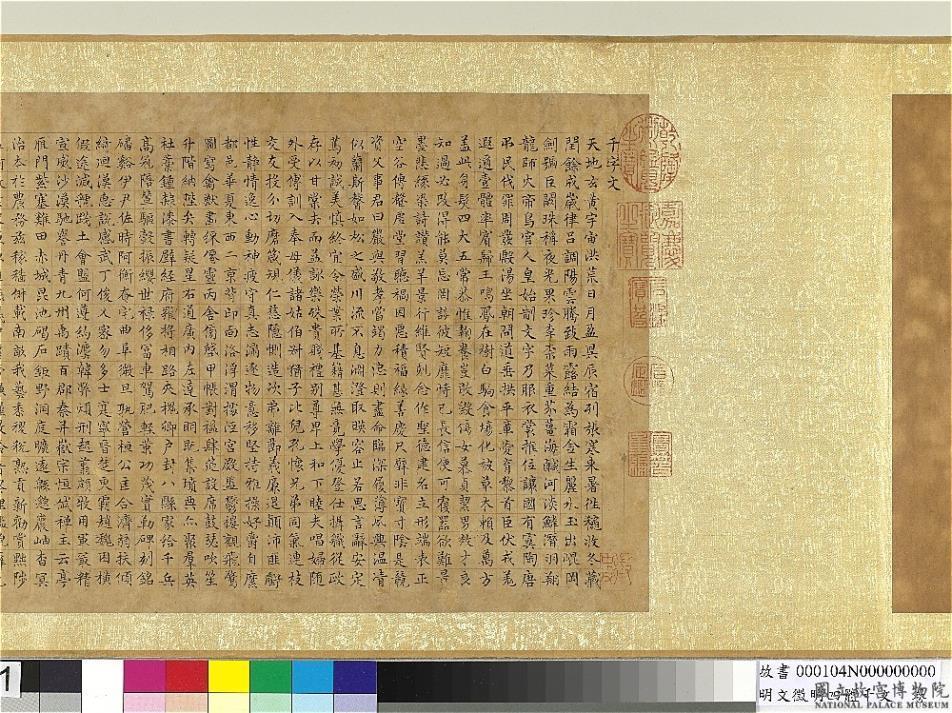 千字文
天地玄黃宇宙洪荒日月盈昃辰宿列張寒來暑往秋收冬藏
閏餘成歲律呂調陽雲騰致雨露結為霜金生麗水玉出崐岡
劍號巨闕珠稱夜光果珍李柰菜重芥薑海鹹河淡鱗潛羽翔
龍師火帝鳥官人皇始制文字乃服衣裳推位讓國有虞陶唐
弔民伐罪周發殷湯坐朝問道垂拱平章愛育黎首臣伏戎羌
遐邇壹體率賓歸王鳴鳳在樹白駒食場化被草木賴及萬方
蓋此身髮四大五常恭惟鞠養豈敢毀傷女慕貞絜男效才良
知過必改得能莫忘罔談彼短靡恃己長信使可覆器欲難量
墨悲絲染詩讚羔羊景行維賢剋念作聖德建名立形端表正
空谷傳聲虛堂習聽禍因惡積福緣善慶尺璧非寶寸陰是競
資父事君曰嚴與敬孝當竭力忠則盡命臨深履薄夙興溫凊
似蘭斯馨如松之盛川流不息淵澄取暎容止若思言辭安定
篤初誠美慎終宜令榮業所基籍甚無竟學優登仕攝職從政
存以甘棠去而益詠樂殊貴賤禮別尊卑上和下睦夫唱婦隨
外受傅訓入奉母儀諸姑伯叔猶子比兒孔懷兄弟同氣連枝
交友投分切磨箴規仁慈隱惻造次弗離節義廉退顛沛匪虧
性靜情逸心動神疲守真志滿逐物意移堅持雅操好爵自縻
都邑華夏東西二京背邙面洛浮渭據涇宮殿盤鬱樓觀飛驚
圖寫禽獸畫綵僊靈丙舍傍啓甲帳對楹肆筵設席鼓瑟吹笙
升階納陛弁轉疑星右通廣內左達承明既集墳典亦聚群英
杜稾鍾隸漆書壁經府羅將相路夾槐卿戶封八縣家給千兵
高冠陪輦驅轂振纓世祿侈富車駕肥輕策功茂實勒碑刻銘
磻谿伊尹佐時阿衡奄宅曲阜微旦孰營桓公匡合濟弱扶傾
綺迴漢惠說感武丁俊乂密勿多士寔寧晉楚更霸趙魏困橫
假途滅虢踐土會盟何遵約法韓弊煩刑起翦頗牧用軍最精
宣威沙漠馳譽丹青九州禹蹟百郡秦并嶽宗恒岱禪主云亭
雁門紫塞雞田赤城昆池碣石鉅野洞庭曠遠綿邈巖岫杳冥
治本於農務茲稼穡俶載南畝我藝黍稷稅熟貢新勸賞黜陟
乾隆御覽之寶
嘉慶御覽之寶
1
故書 000104N000000000
明文徵明四體千文 卷
國立故宮博物院
NATIONAL PALACE MUSEUM